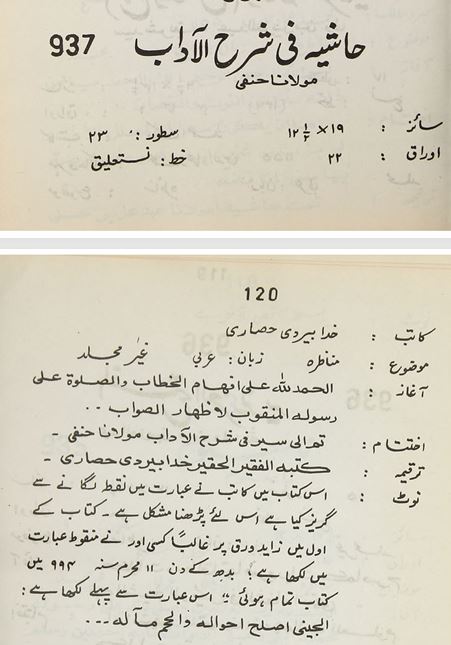 حاشیہ فی شرح الآداب 937
مولانا حنفی
سائز : ۱۹ × ۱۲ ½ سطور : ۲۳
اوراق : ۲۲ خط : نستعلیق
120
کاتب : خدا بیردی حصاری
موضوع : مناظرہ زبان : عربی غیر مجلد
آغاز : الحمد للہ علی افہام الخطاب والصلوۃ علی
رسولہ المنقوب لاظہار الصواب ..
اختتام : تم الی سیر فی شرح الآداب مولانا حنفی -
ترقیمہ : کتبہ الفقیر الحقیر خدا بیردی حصاری -
نوٹ : اس کتاب میں کاتب نے عبارت میں نقط لگانے سے
گریز کیا ہے اس لئے پڑھنا مشکل ہے - کتاب کے
اول میں زاید ورق پر غالباً کسی اور نے منقوط عبارت
میں لکھا ہے؛ بدھ کے دن ۱۱ محرم سنہ ۹۹۴ میں
کتاب تمام ہوئی ؛؛ اس عبارت سے پہلے لکھا ہے :
الجینی اصلح احوالہ وانجح مآلہ ...